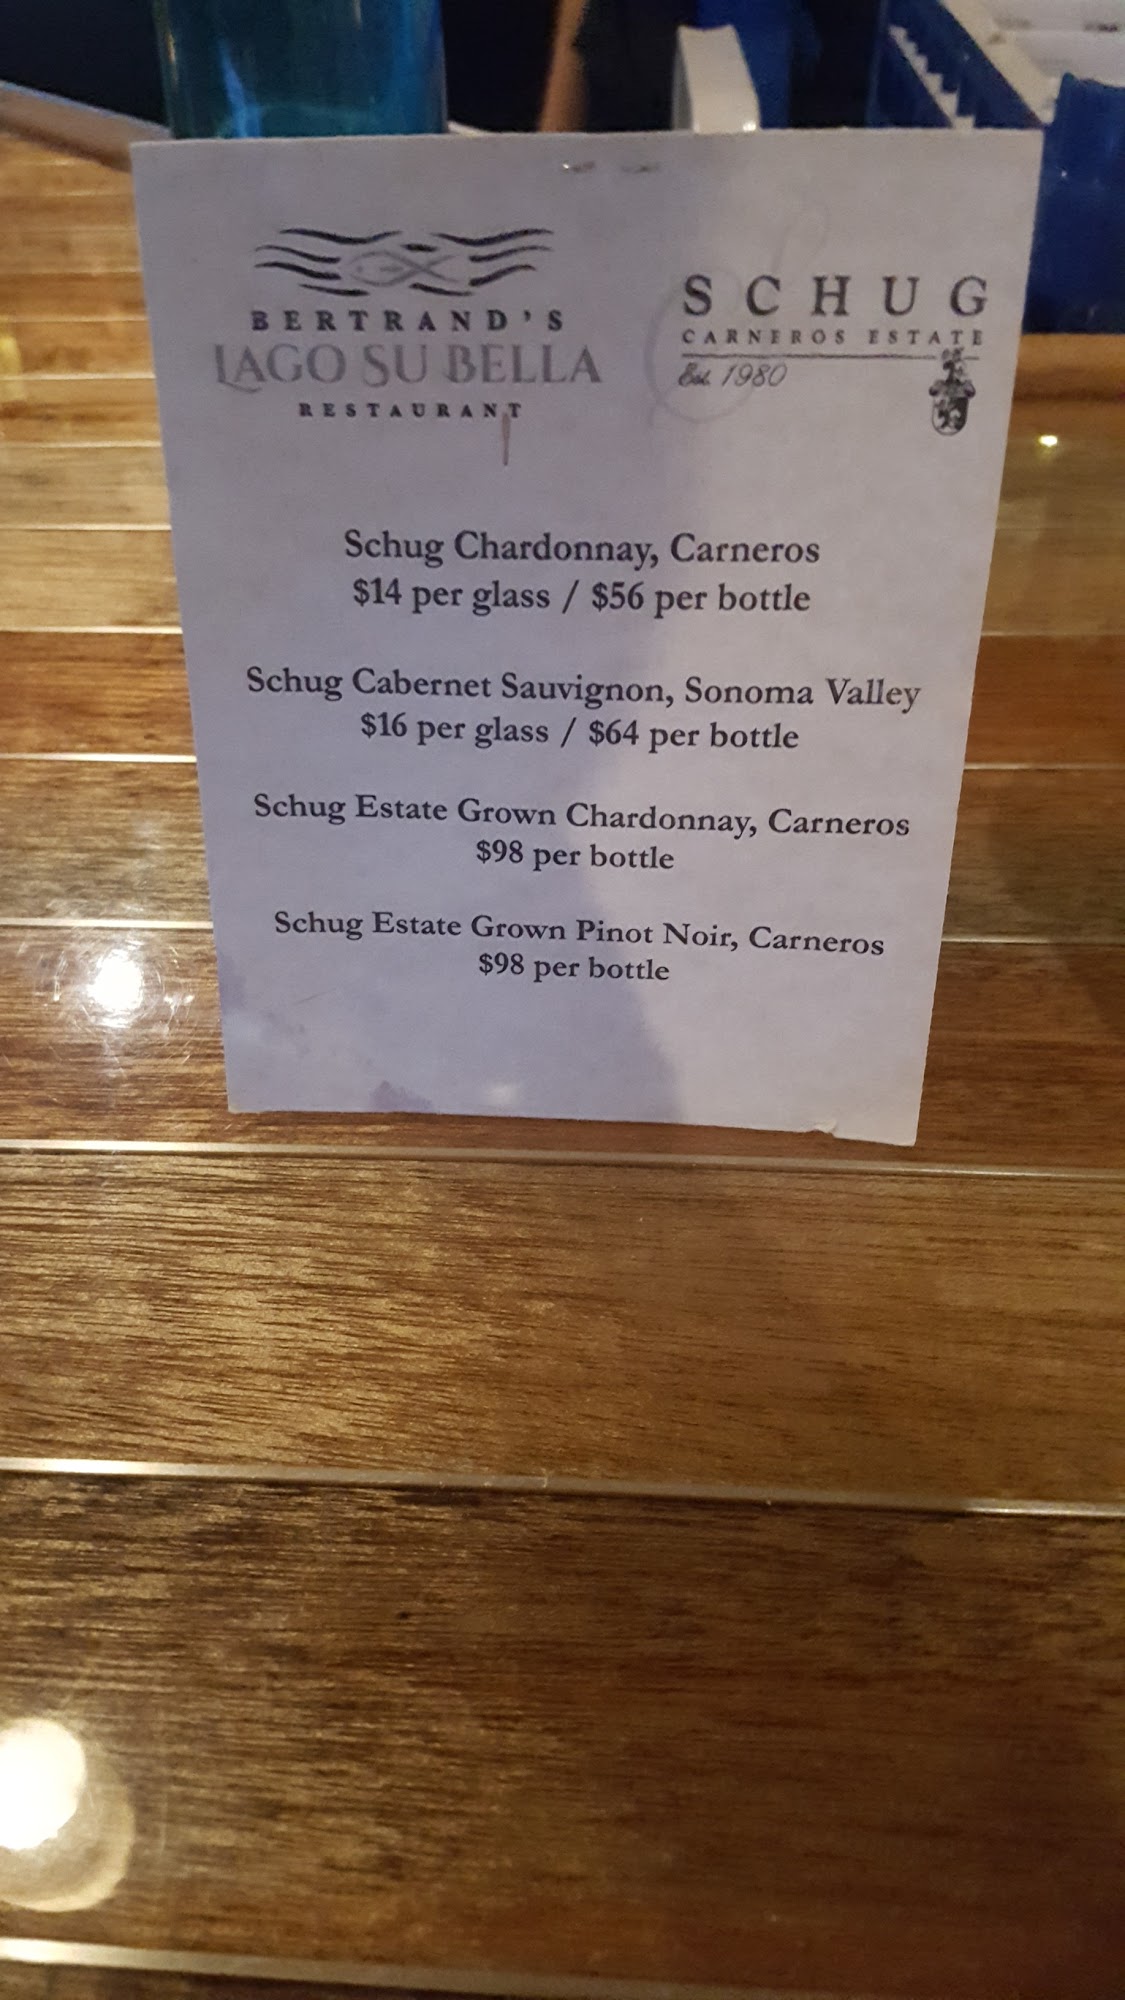 BERTRAND'S
LAGO SU BELLA
RESTAURANT
SCHUG
CARNEROS ESTATE
Est. 1980
Schug Chardonnay, Carneros
$14 per glass / $56 per bottle
Schug Cabernet Sauvignon, Sonoma Valley
$16 per glass / $64 per bottle
Schug Estate Grown Chardonnay, Carneros
$98 per bottle
Schug Estate Grown Pinot Noir, Carneros
$98 per bottle